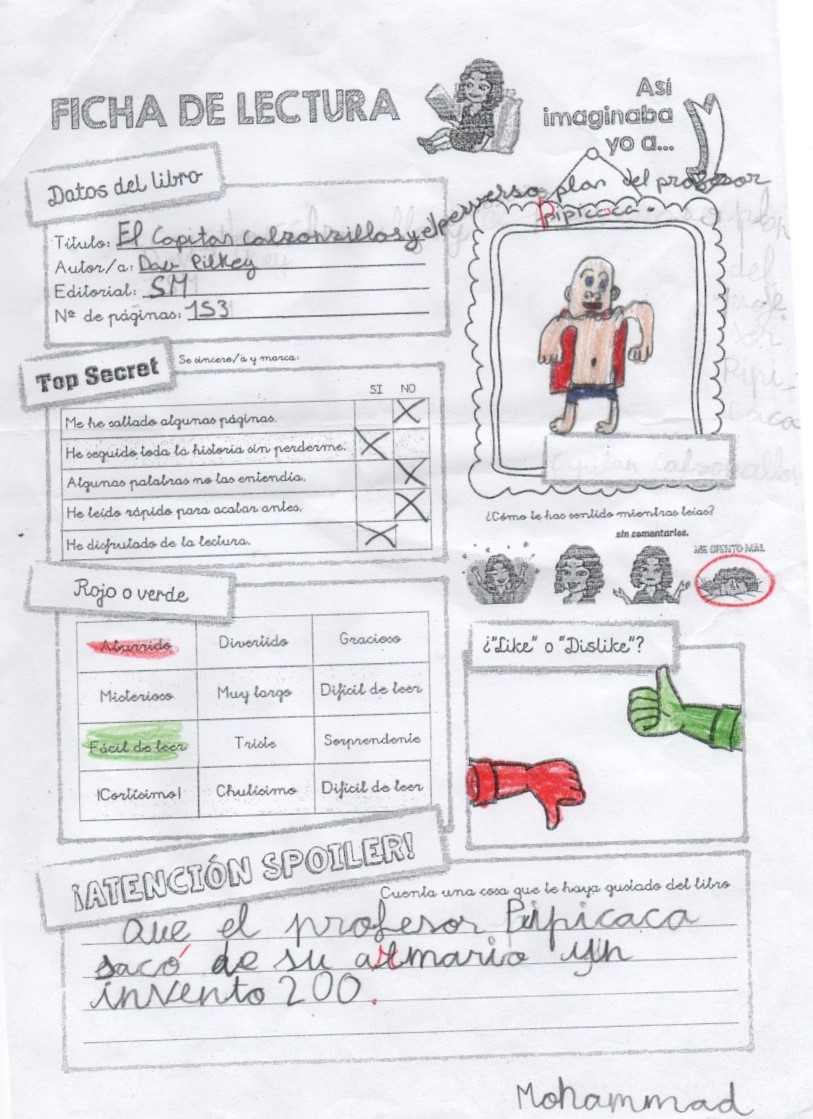 FICHA DE LECTURA
Así
imaginaba
yo a...
Datos del libro
Título: El Capitan Calzonzillos y el perverso plan del profesor
Pipicaca.
Autor/a: Dav Pilkey
Editorial: SM
Nº de páginas: 153
Capitan Calzoncillos
Top Secret
Se sincero/a y marca:
SI NO
Me he saltado algunas páginas. X
He seguido toda la historia sin perderme. X
Algunas palabras no las entendía. X
He leído rápido para acabar antes. X
He disfrutado de la lectura. X
¿Cómo te has sentido mientras leías?
sin comentarios.
ME SIENTO MAL
Rojo o verde
Aburrido Divertido Gracioso
Misterioso Muy largo Difícil de leer
Fácil de leer Triste Sorprendente
¡Cortísimo! Chulísimo Difícil de leer
¿"Like" o "Dislike"?
¡ATENCIÓN SPOILER!
Cuenta una cosa que te haya gustado del libro
Que el profesor Pipicaca
sacó de su armario un
invento 200.
Mohammad